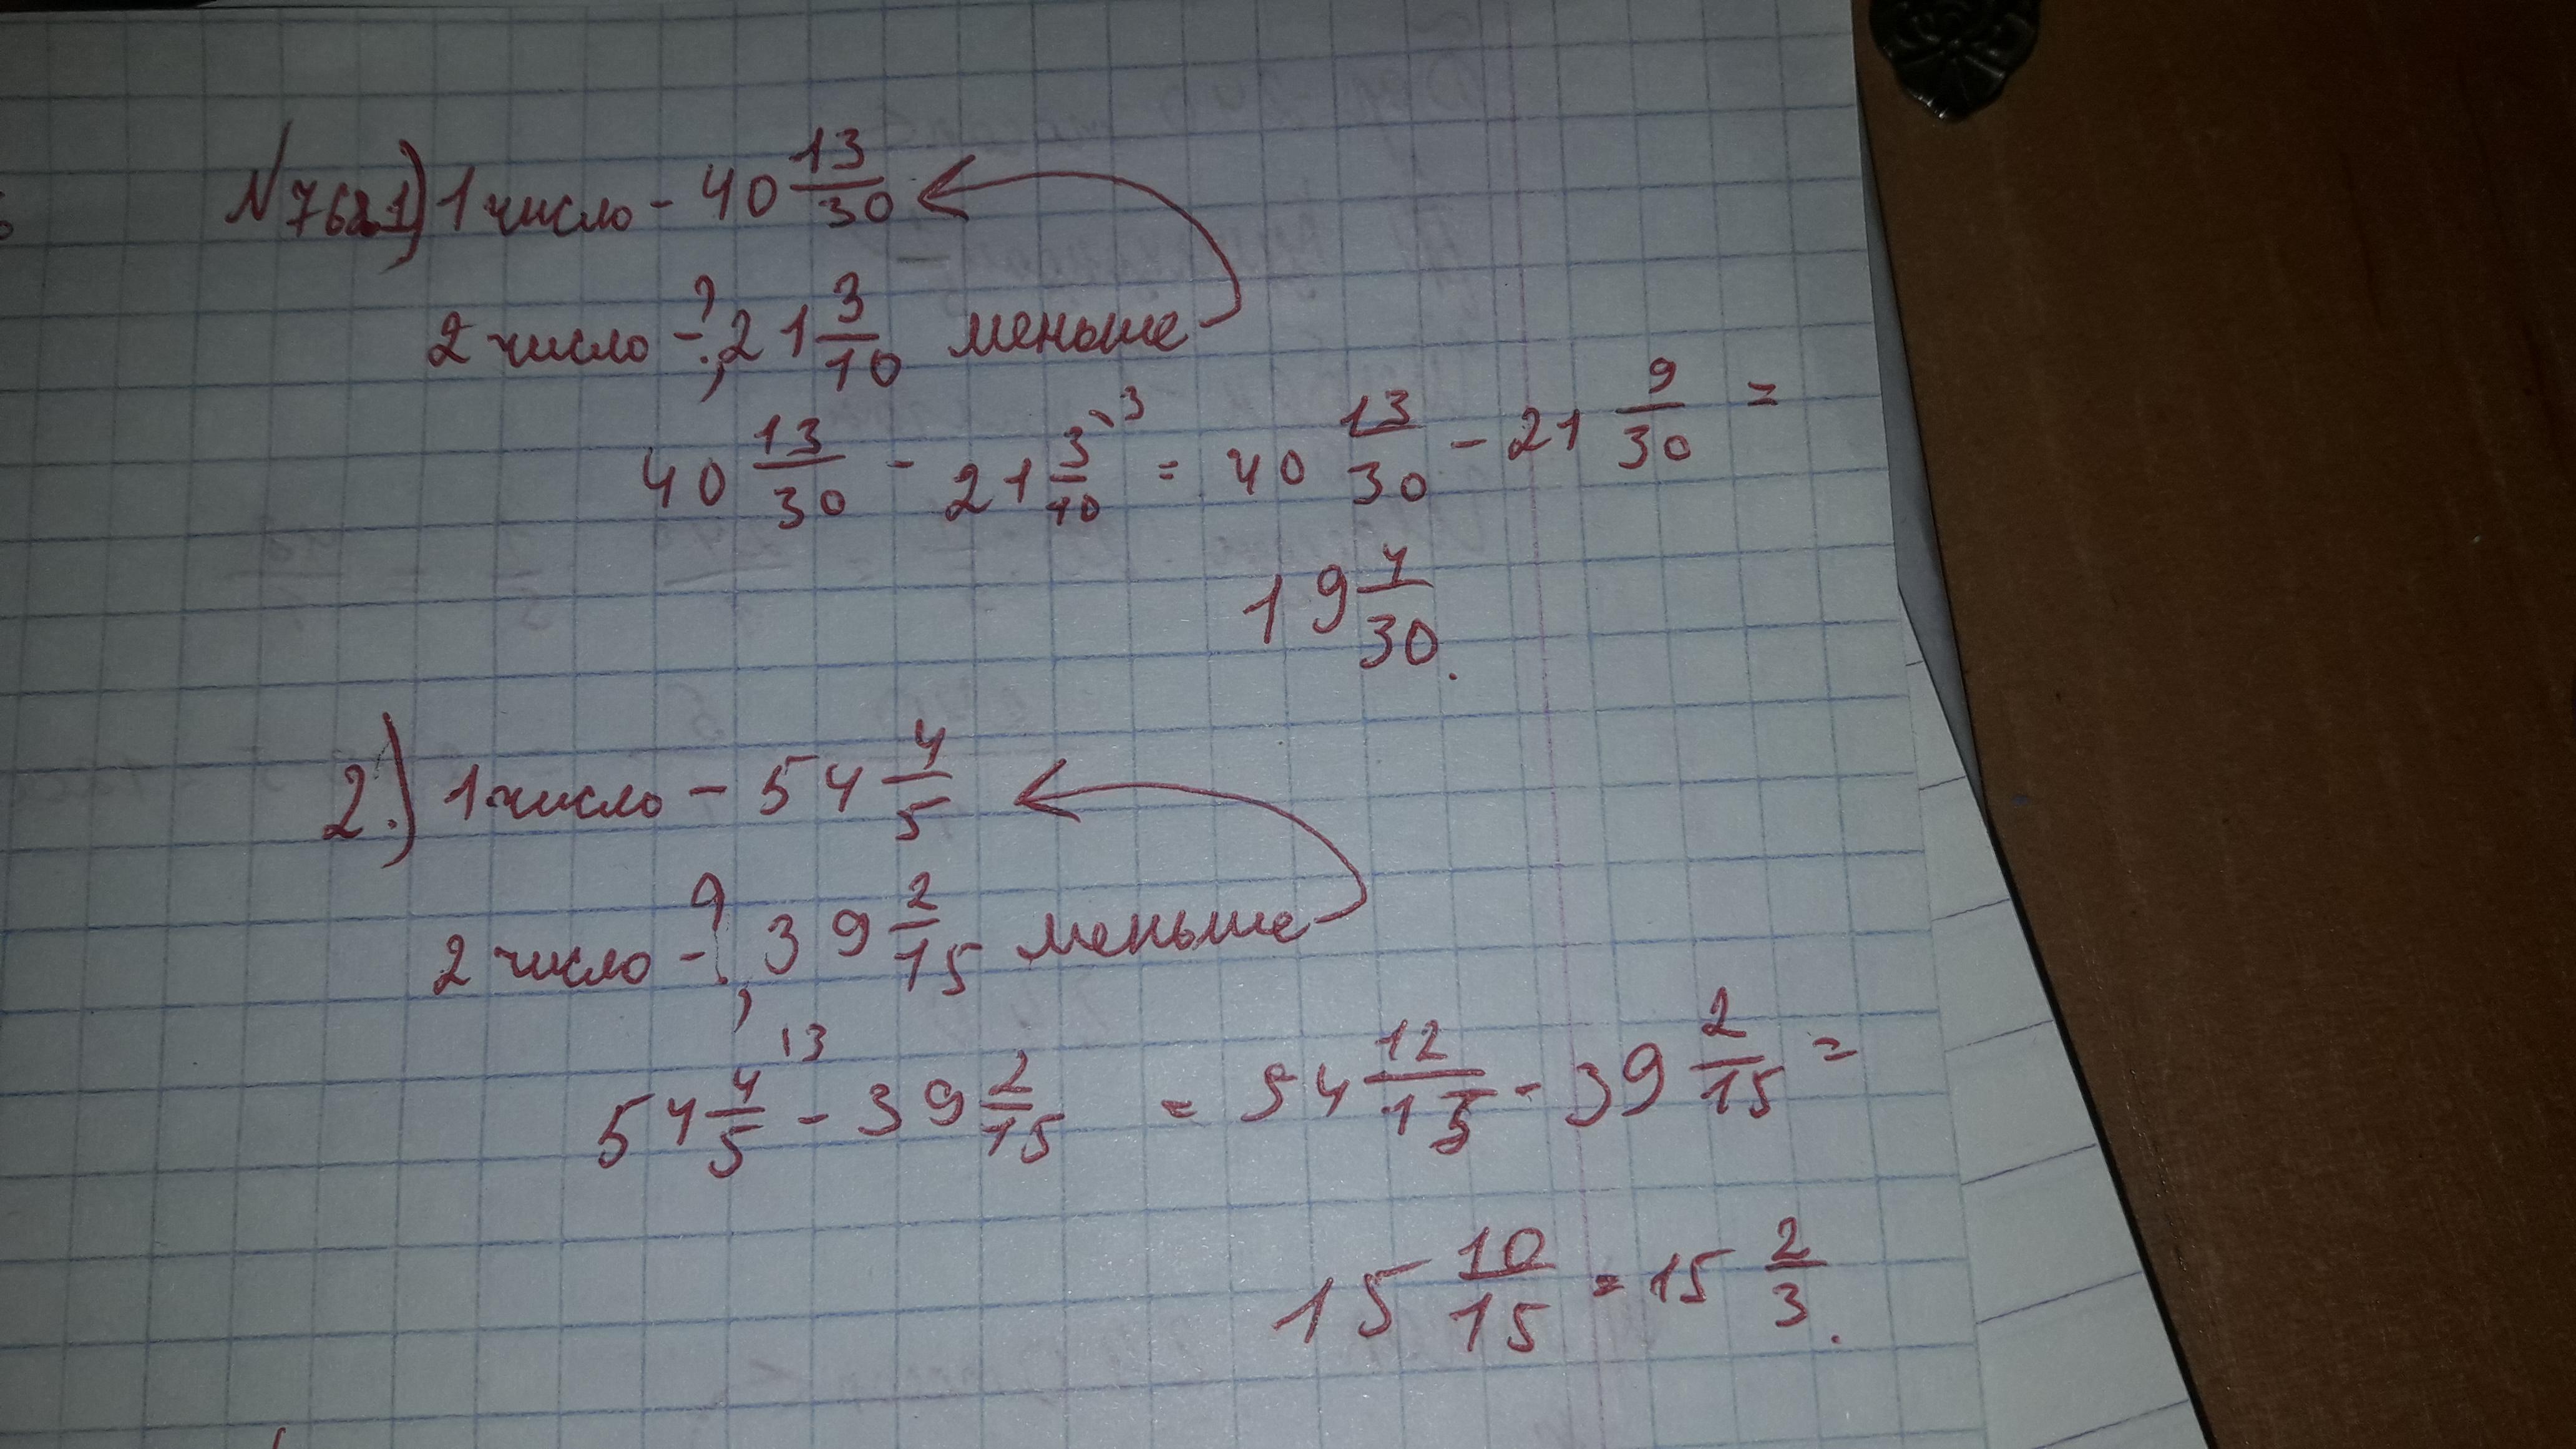 N 762 1) 1 число - 40 13/30
2 число - ?, 21 3/10 меньше
40 13/30 - 21 3/10 \3 = 40 13/30 - 21 9/30 =
19 4/30.
2.) 1 число - 54 4/5
2 число - ?, 39 2/15 меньше
54 4/5 \3 - 39 2/15 = 54 12/15 - 39 2/15 =
15 10/15 = 15 2/3.